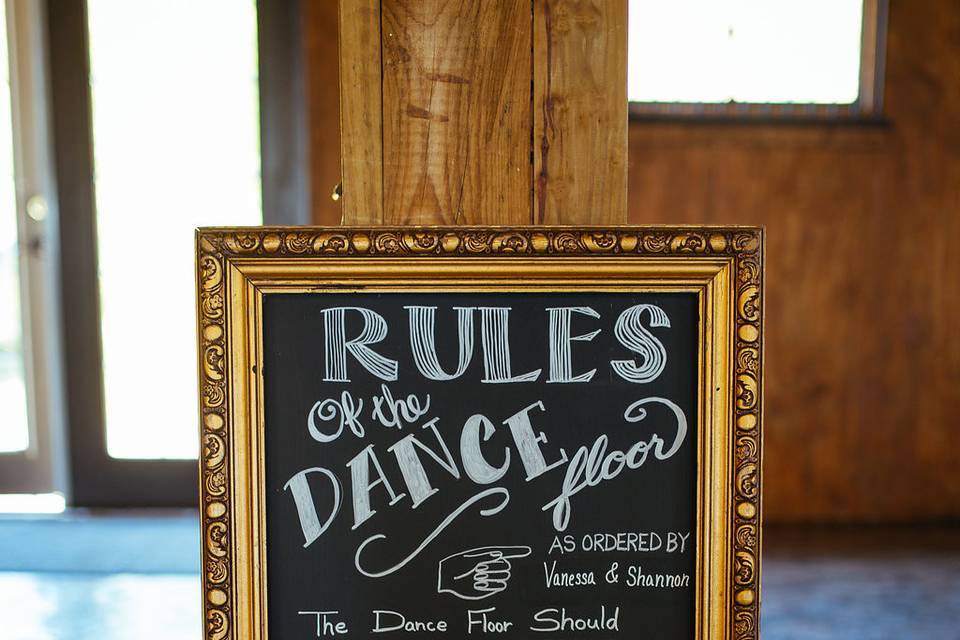 RULES
Of the
DANCE floor
AS ORDERED BY
Vanessa & Shannon
The Dance Floor Should